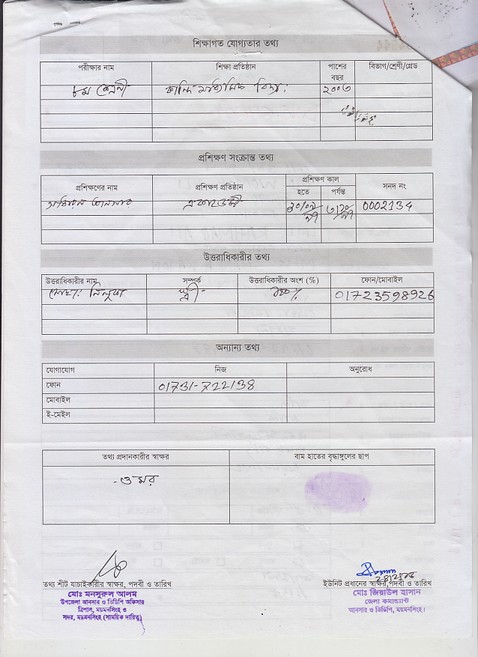 শিক্ষাগত যোগ্যতার তথ্য
পরীক্ষার নাম শিক্ষা প্রতিষ্ঠান পাশের বছর বিভাগ/শ্রেণী/গ্রেড
৮ম শ্রেণী
প্রশিক্ষণ সংক্রান্ত তথ্য
প্রশিক্ষণের নাম প্রশিক্ষণ প্রতিষ্ঠান প্রশিক্ষণ কাল সনদ নং
হতে পর্যন্ত
0002134
উত্তরাধিকারীর তথ্য
উত্তরাধিকারীর নাম সম্পর্ক উত্তরাধিকারীর অংশ (%) ফোন/মোবাইল
স্ত্রী 01723598926
অন্যান্য তথ্য
যোগাযোগ নিজ অনুরোধ
ফোন 01731-722138
মোবাইল
ই-মেইল
তথ্য প্রদানকারীর স্বাক্ষর বাম হাতের বৃদ্ধাঙ্গুলের ছাপ
ওমর
তথ্য শীট যাচাইকারীর স্বাক্ষর, পদবী ও তারিখ
মোঃ মনসুরুল আলম
উপজেলা আনসার ও ভিডিপি অফিসার
ত্রিশাল, ময়মনসিংহ ও
সদর, ময়মনসিংহ (সাময়িক দায়িত্ব)
ইউনিট প্রধানের স্বাক্ষর, পদবী ও তারিখ
মোঃ জিয়াউল হাসান
জেলা কমান্ড্যান্ট
আনসার ও ভিডিপি, ময়মনসিংহ।